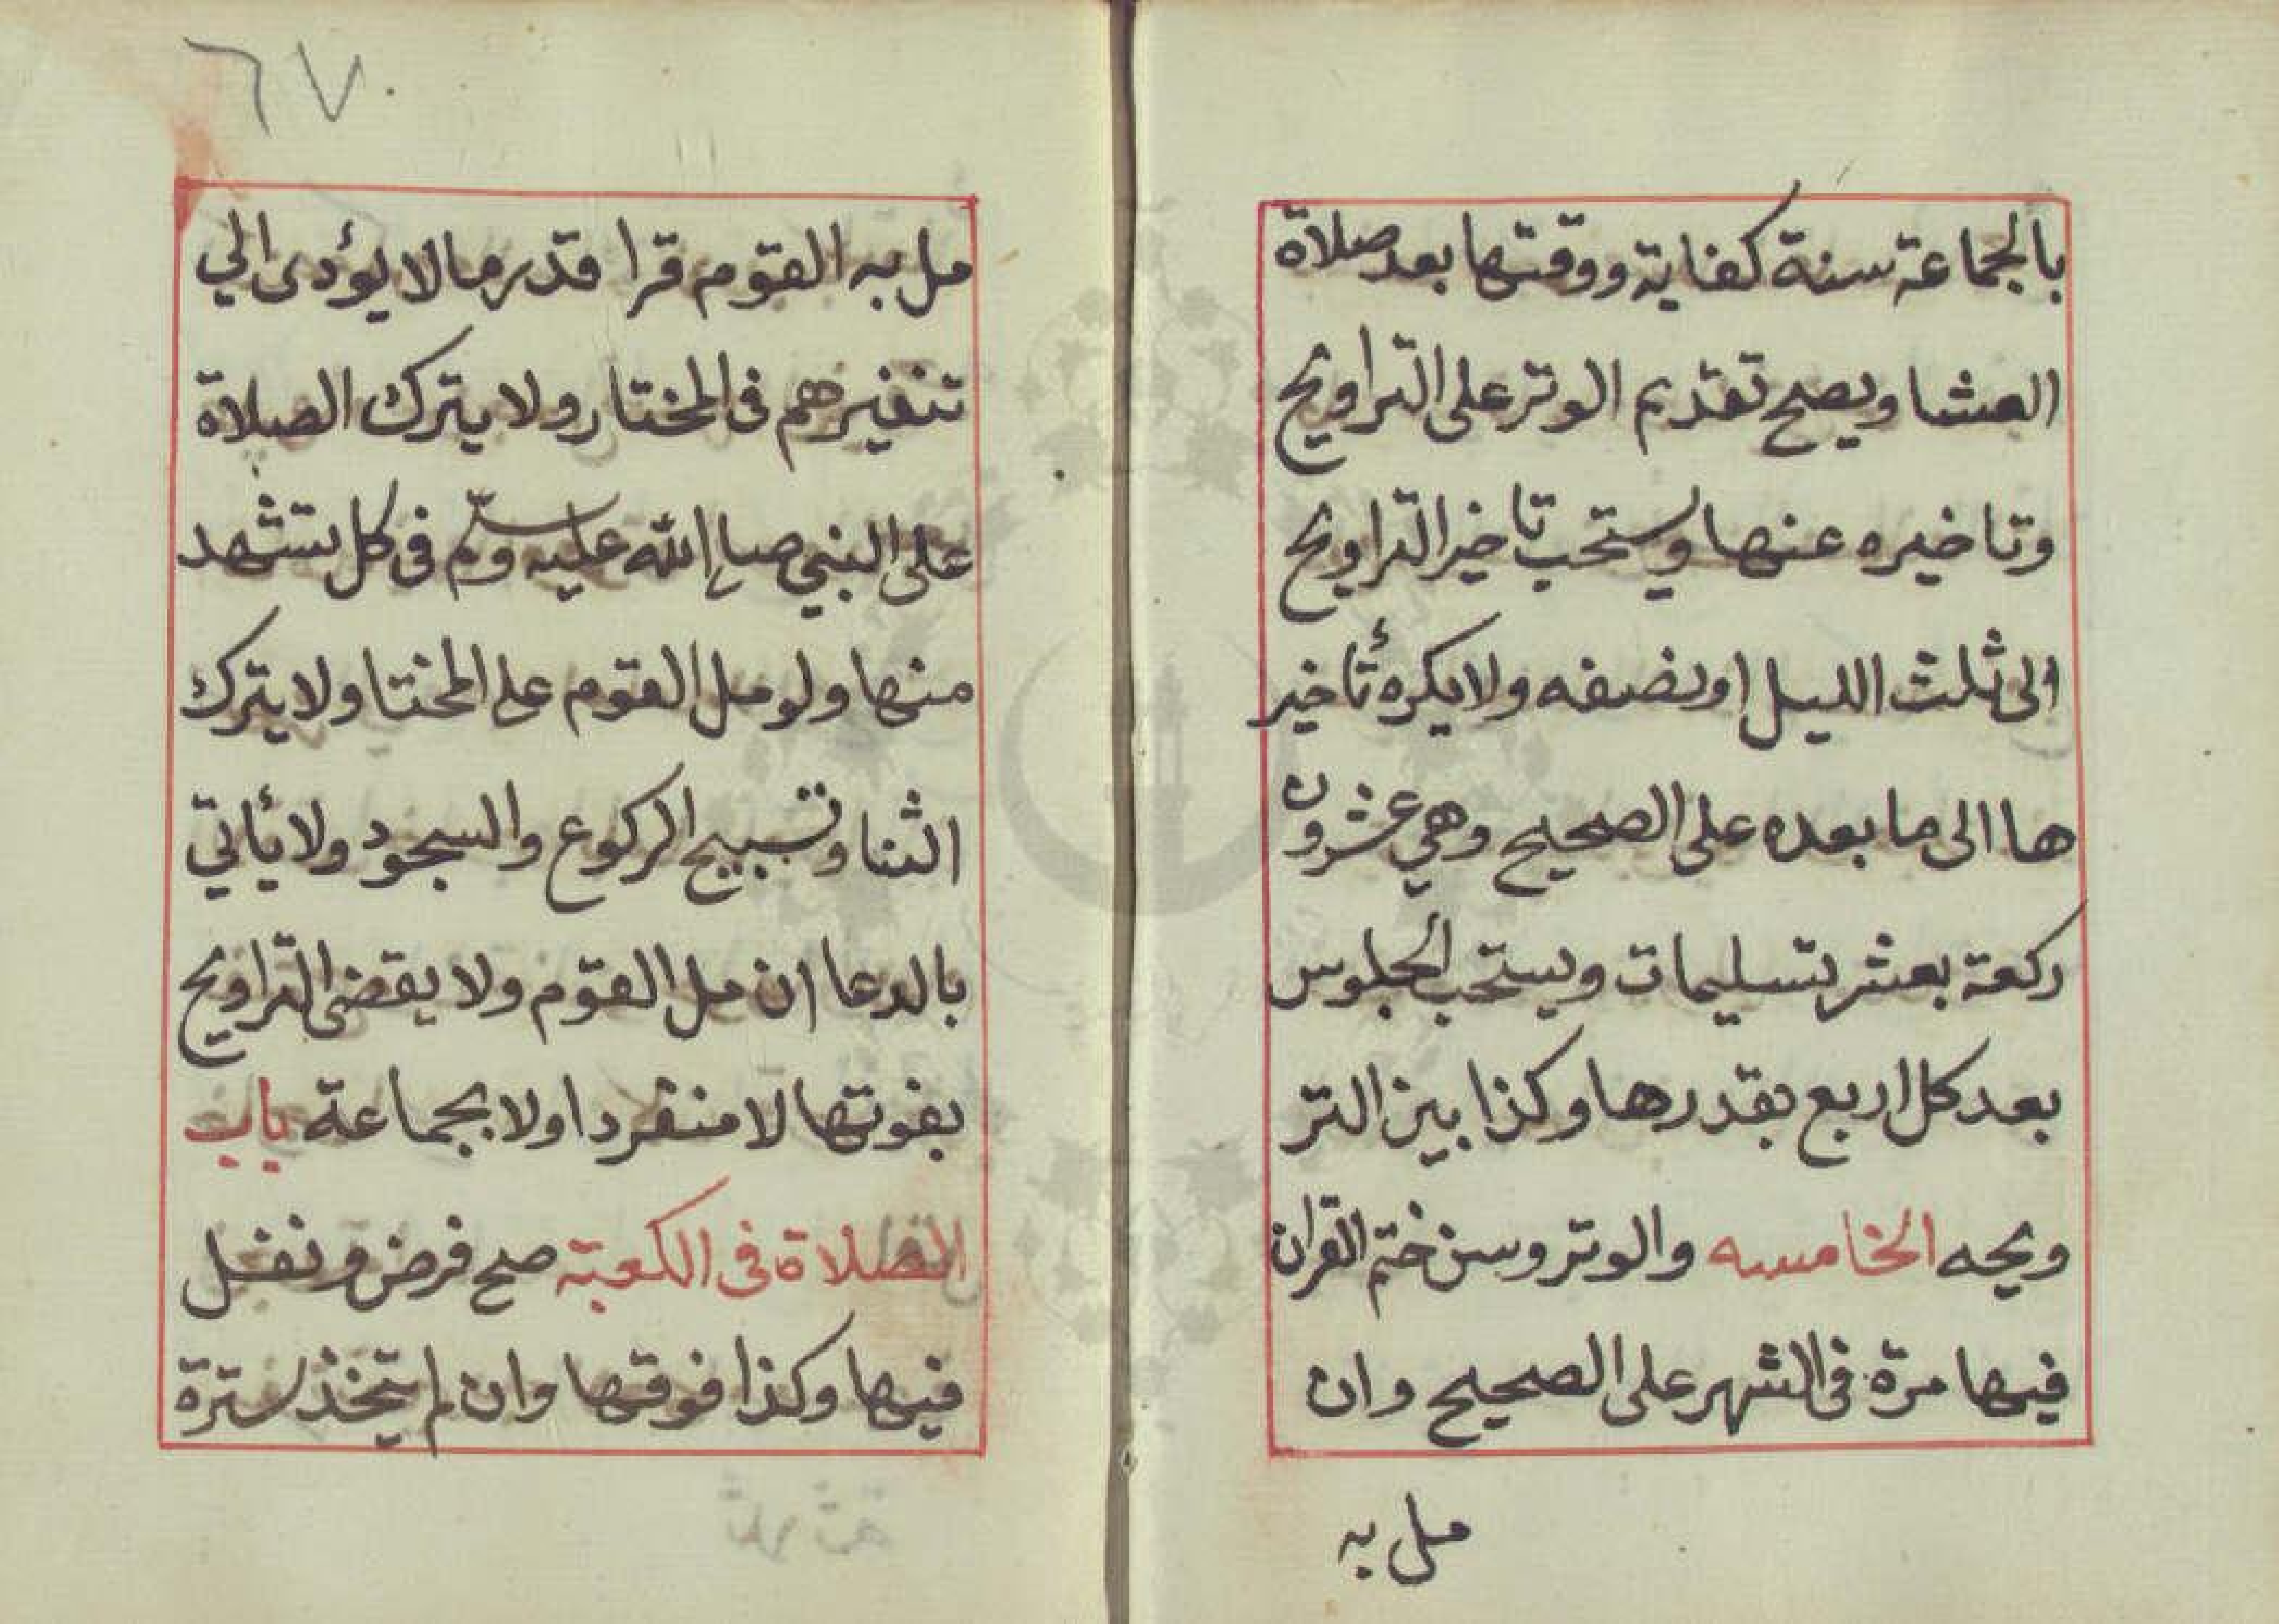 بالجماعة سنة كفاية ووقتها بعد صلاة
العشا ويصح تقديم الوتر على التراويح
وتاخيره عنها ويستحب تاخير التراويح
الى ثلث الليل او نصفه ولا يكره تأخير
ها الى ما بعده على الصحيح وهي عشرون
ركعة بعشر تسليمات ويستحب الجلوس
بعد كل اربع بقدرها وكذا بين التر
ويحه الخامسه والوتر وسن ختم القران
فيها مرة في الشهر على الصحيح وان
مل به
٦٧
مل به القوم قرا قدر ما لا يؤدى الي
تنفيرهم في المختار ولا يترك الصلاة
على النبي صلى الله عليه وسلم في كل تشهد
منها ولو مل القوم على المختا ولا يترك
الثنا وتسبيح الركوع والسجود ولا يأتي
بالدعا ان مل القوم ولا يقضى التراويح
بفوتها لا منفردا ولا بجماعة باب
الصلاة في الكعبة صح فرض ونفل
فيها وكذا فوقها وان لم يتخذ سترة